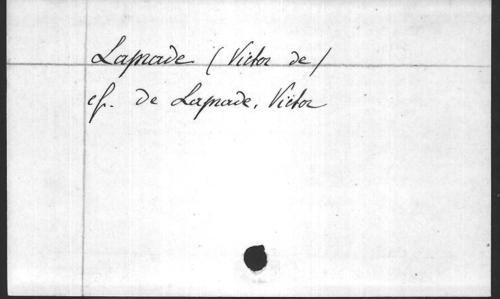 Laprade (Victor de)
cf. de Laprade, Victor